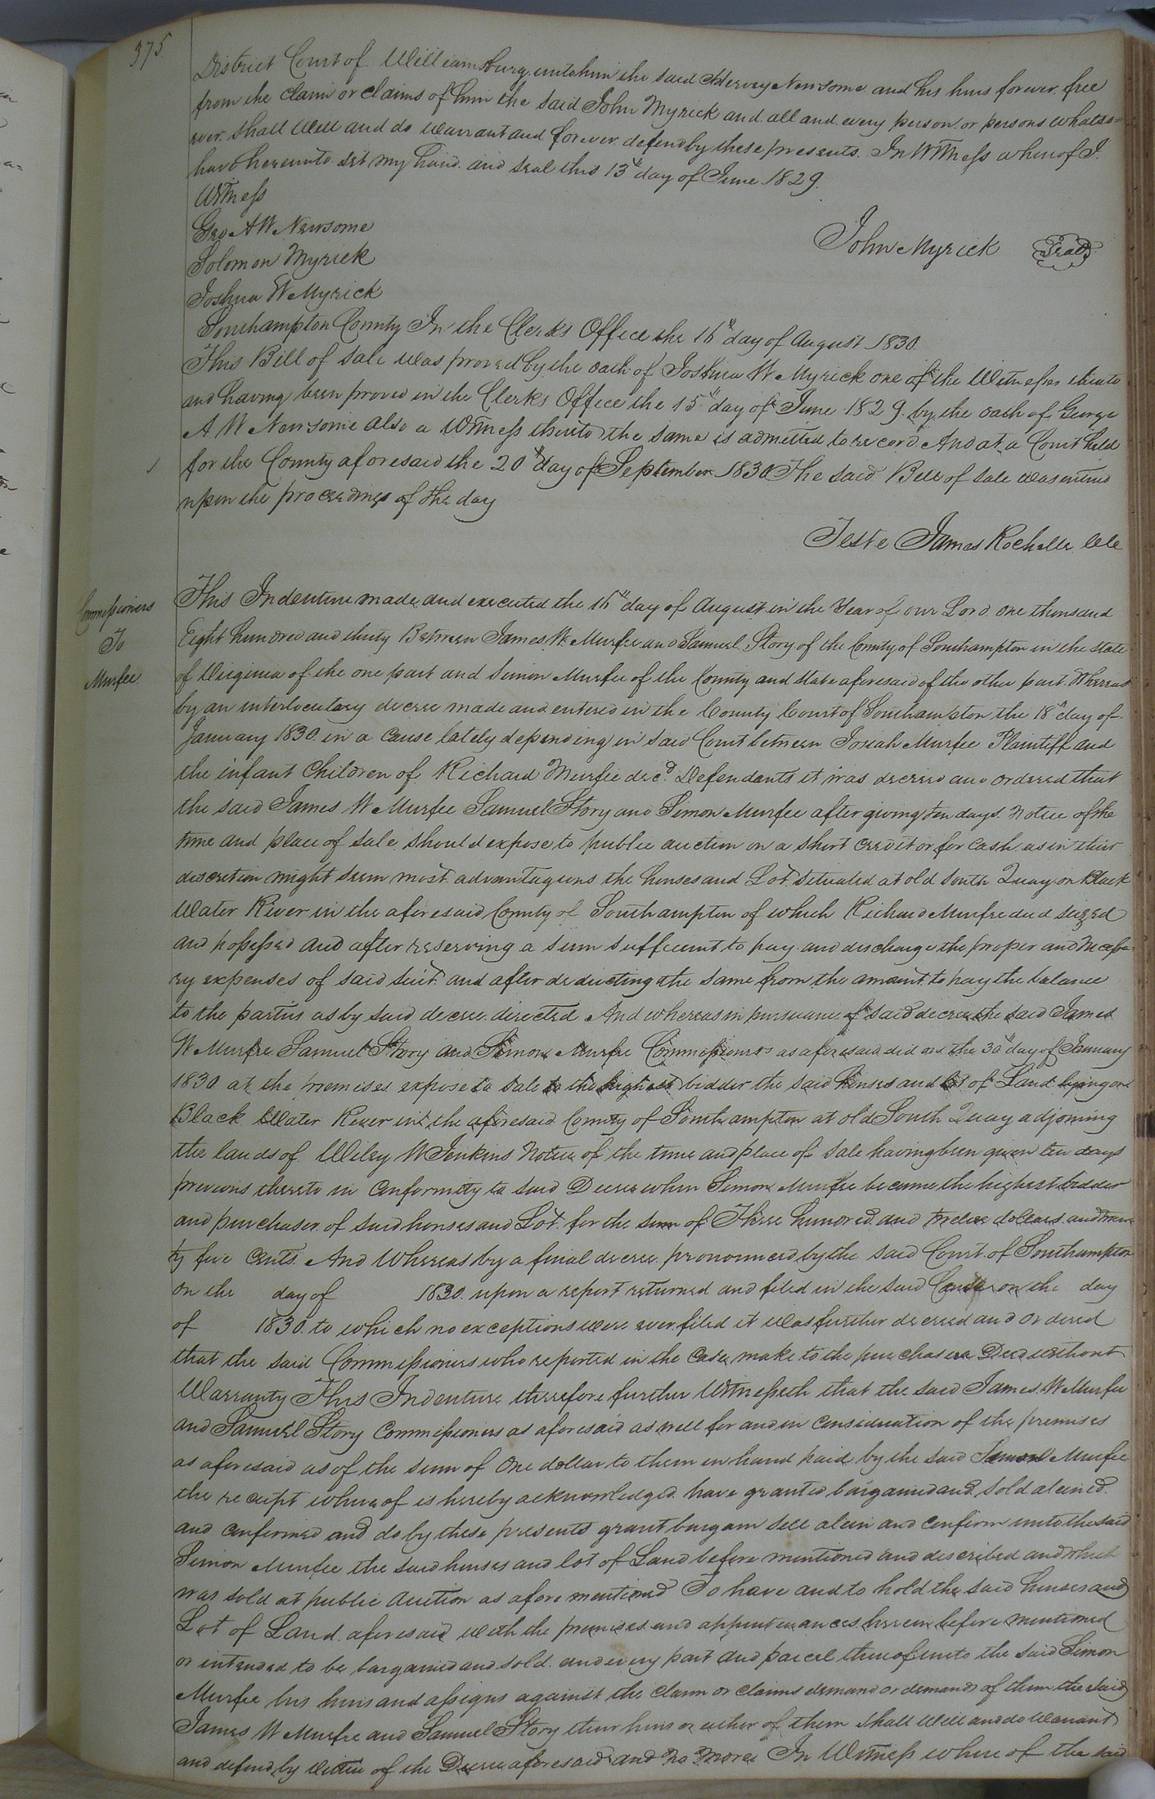 375
District Court of Williamsburg unto him the said Hervey Newsome and his heirs forever free
from the claim or claims of him the said John Myrick and all and every person or persons whatso-
ever shall Well and do warrant and forever defend by these presents. In Witness whereof I
have hereunto set my hand and seal this 13th day of June 1829.
Witness
Geo A W Newsome
John Myrick Seal
Solomon Myrick
Joshua W Myrick
Southampton County In the Clerks Office the 16th day of August 1830
This Bill of sale was proved by the oath of Joshua W Myrick one of the Witnesses thereto
and having been proved in the Clerks Office the 15th day of June 1829 by the oath of George
A W Newsome also a Witness thereto the same is admitted to record And at a Court held
for the County aforesaid the 20th day of September 1830 The said Bill of sale was entered
upon the proceedings of the day
Teste James Rochelle Clk
Commissioners
To
Murfee
This Indenture made and executed the 16th day of August in the Year of our Lord one thousand
Eight hundred and thirty Between James W Murfee and Samuel Story of the County of Southampton in the State
of Virginia of the one part and Simon Murfee of the County and State aforesaid of the other part Whereas
by an interlocutory decree made and entered in the County Court of Southampton the 18th day of
January 1830 in a cause lately depending in said Court between Josiah Murfee Plaintiff and
the infant Children of Richard Murfee decd. Defendants it was decreed and ordered that
the said James W Murfee Samuel Story and Simon Murfee after giving ten days Notice of the
time and place of sale should expose to public auction on a short credit or for cash as in their
discretion might seem most advantageous the houses and Lot situated at old South Quay on Black
Water River in the aforesaid County of Southampton of which Richard Murfee died seized
and possessed and after reserving a sum sufficient to pay and discharge the proper and necessa-
ry expenses of said suit and after deducting the same from the amount to pay the balance
to the parties as by said decree directed And whereas in pursuance of said decree the said James
W Murfee Samuel Story and Simon Murfee Commissioners as aforesaid did on the 30th day of January
1830 at the premises expose to sale to the highest bidder the said Houses and Lot of Land lying on
Black Water River in the aforesaid County of Southampton at old South Quay adjoining
the lands of Wiley W Jenkins Notice of the time and place of sale having been given ten days
previous thereto in conformity to said Decree when Simon Murfee became the highest bidder
and purchaser of said houses and Lot for the sum of Three hundred and twelve dollars and twen
ty five Cents And Whereas by a final decree pronounced by the said Court of Southampton
on the day of 1830 upon a report returned and filed in the said Cause on the day
of 1830 to which no exceptions were ever filed it was further decreed and ordered
that the said Commissioners who reported in the Case make to the purchaser a Deed without
Warranty This Indenture therefore further Witnesseth that the said James W Murfee
and Samuel Story Commissioners as aforesaid as well for and in consideration of the premises
as aforesaid as of the sum of One dollar to them in hand paid by the said Simon Murfee
the receipt whereof is hereby acknowledged have granted bargained and sold aliened
and confirmed and do by these presents grant bargain sell alien and confirm unto the said
Simon Murfee the said houses and lot of Land before mentioned and described and which
was sold at public Auction as afore mentioned To have and to hold the said houses and
Lot of Land aforesaid with the premises and appurtenances herein before mentioned
or intended to be bargained and sold and every part and parcel thereof unto the said Simon
Murfee his heirs and assigns against the claim or claims demand or demands of them the said
James W Murfee and Samuel Story their heirs or either of them shall Will and do Warrant
and defend by virtue of the Decree aforesaid and no more In Witness where of the said